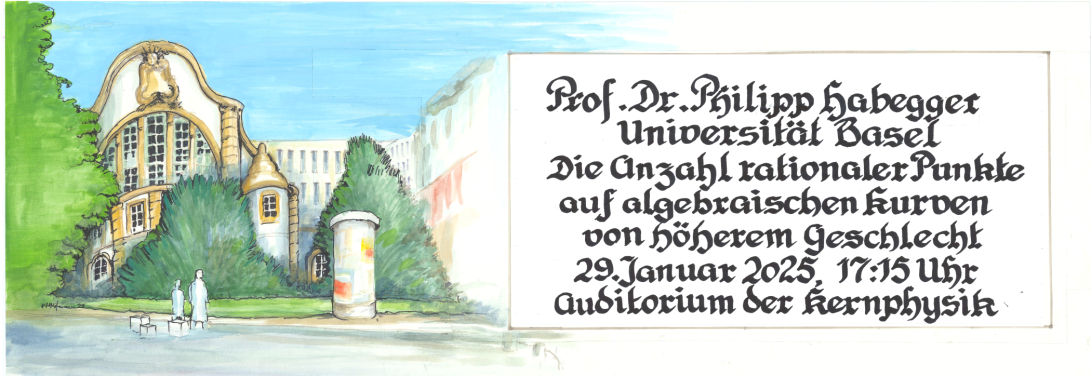 Prof. Dr. Philipp Habegger
Universität Basel
Die Anzahl rationaler Punkte
auf algebraischen Kurven
von höherem Geschlecht
29. Januar 2025, 17:15 Uhr
Auditorium der Kernphysik